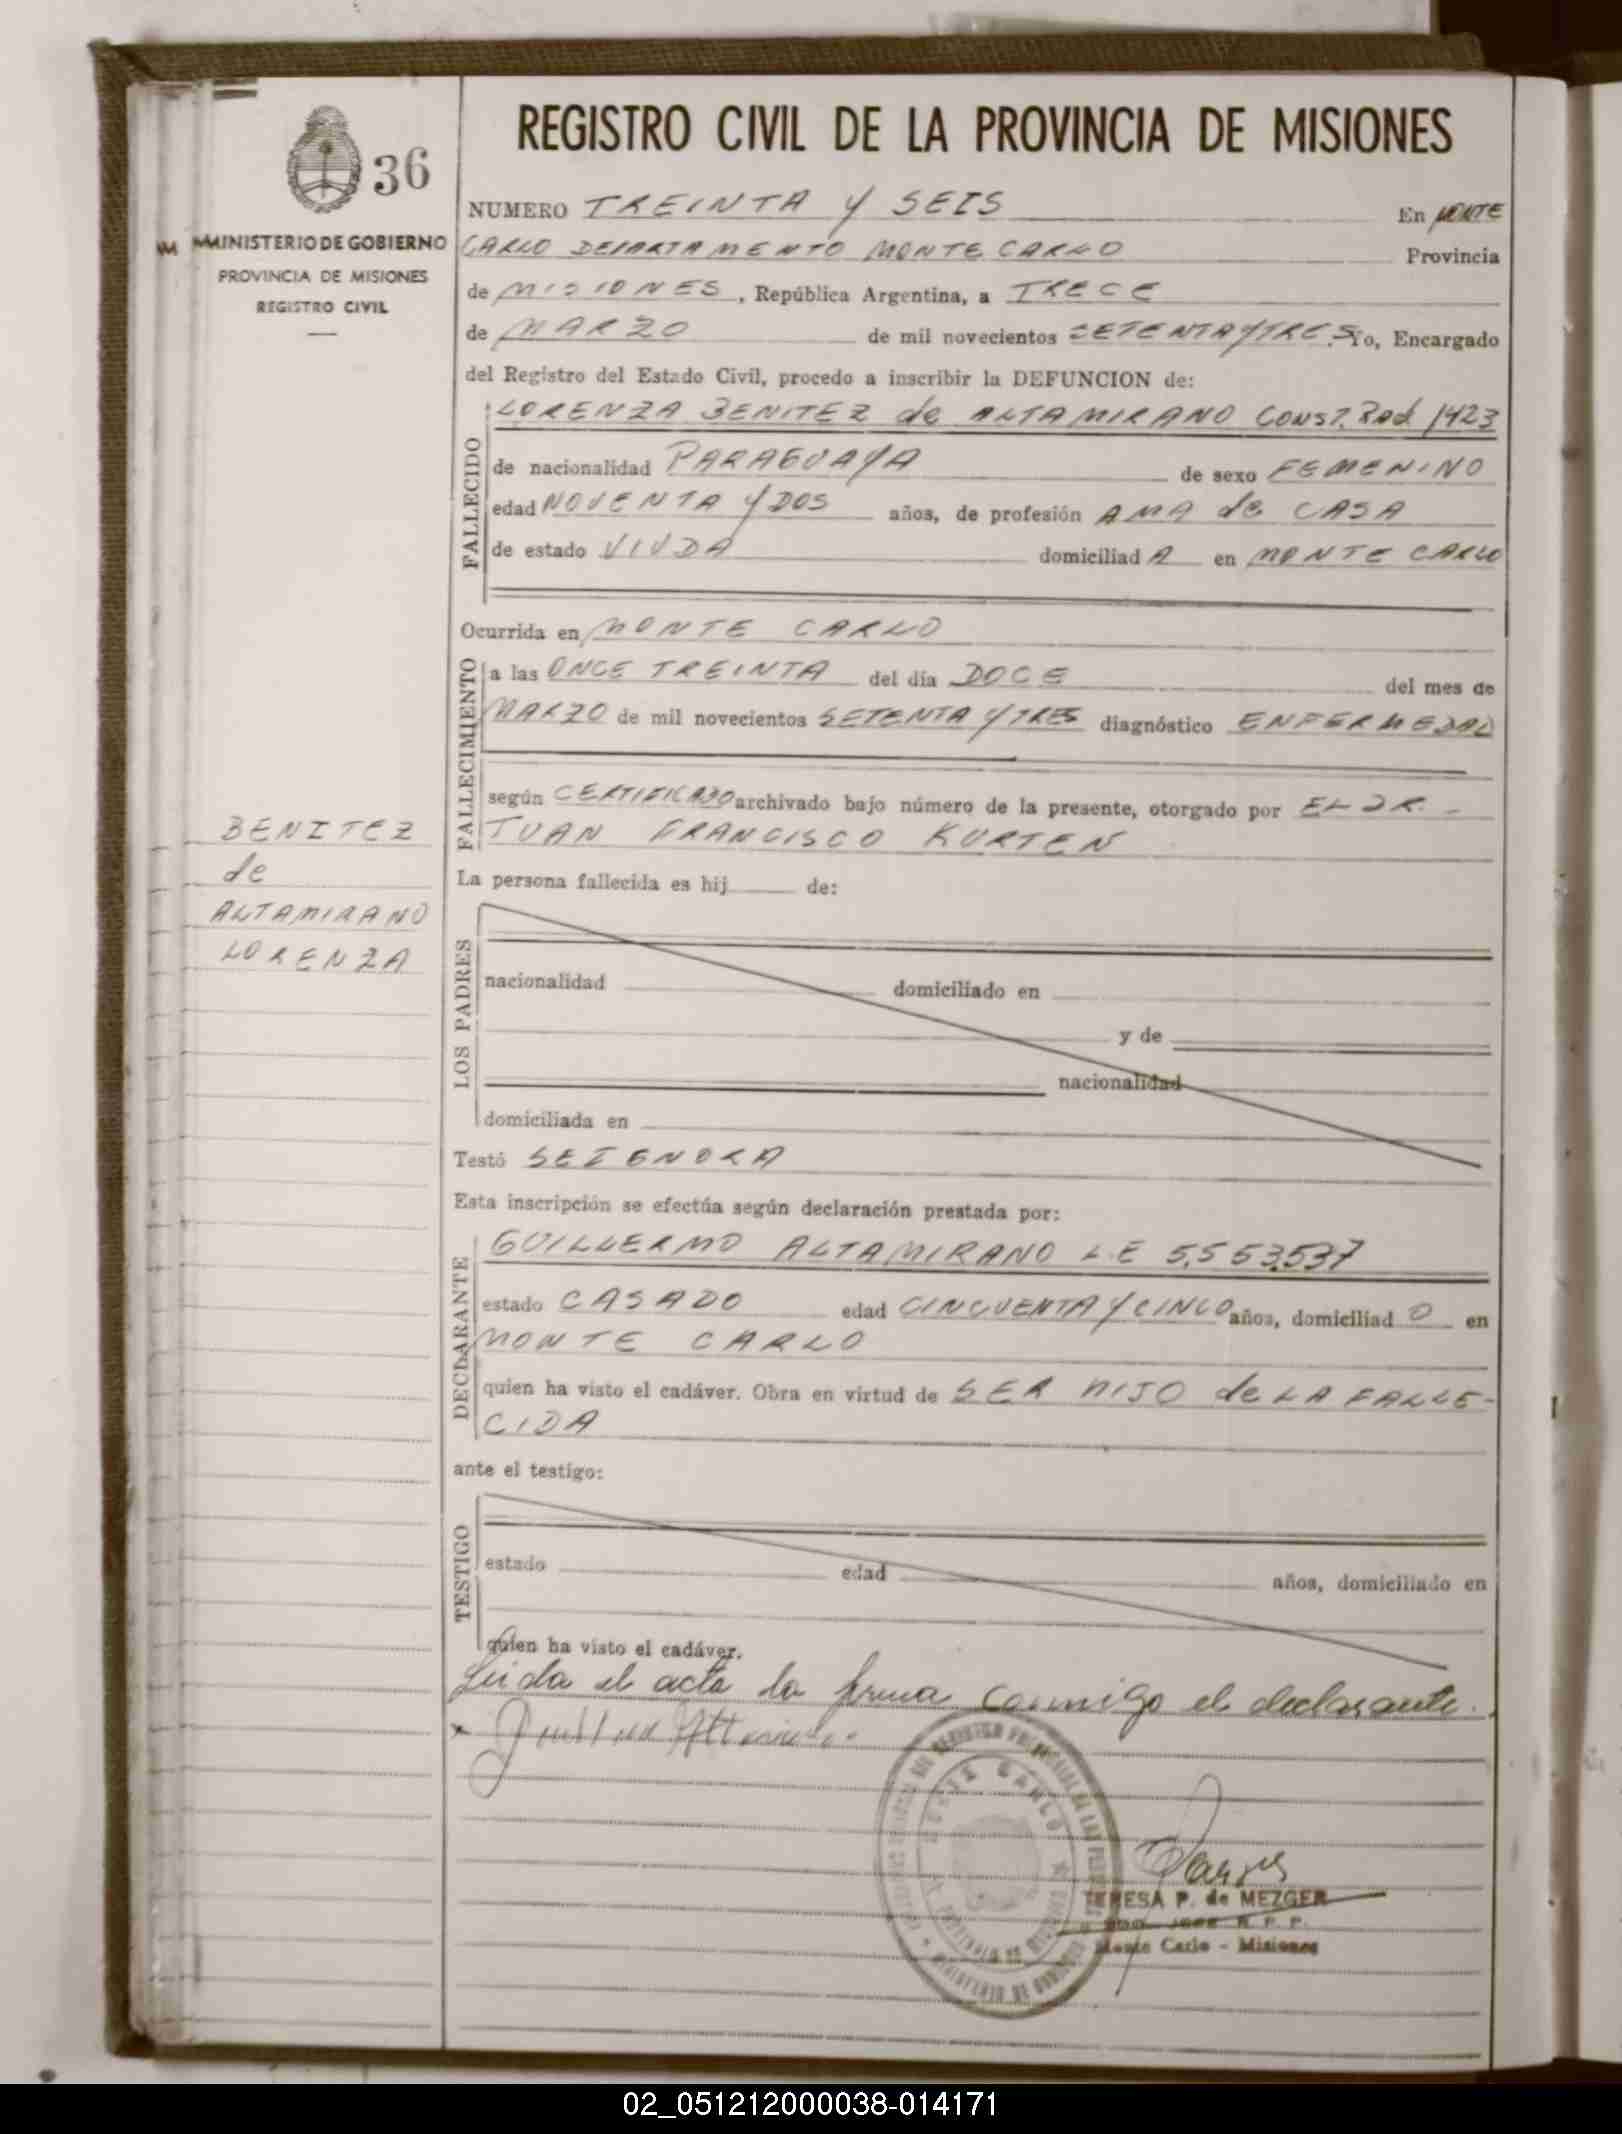 REGISTRO CIVIL DE LA PROVINCIA DE MISIONES
36
MINISTERIO DE GOBIERNO
PROVINCIA DE MISIONES
REGISTRO CIVIL
NUMERO TREINTA Y SEIS En MONTE
CARLO DEPARTAMENTO MONTE CARLO Provincia
de MISIONES, República Argentina, a TRECE
de MARZO de mil novecientos SETENTA Y TRES. Yo, Encargado
del Registro del Estado Civil, procedo a inscribir la DEFUNCION de:
FALLECIDO
LORENZA BENITEZ de ALTAMIRANO CONST. Rad. 1423
de nacionalidad PARAGUAYA de sexo FEMENINO
edad NOVENTA Y DOS años, de profesión AMA de CASA
de estado VIUDA domiciliad A en MONTE CARLO
Ocurrida en MONTE CARLO
FALLECIMIENTO
a las ONCE TREINTA del día DOCE del mes de
MARZO de mil novecientos SETENTA Y TRES diagnóstico ENFERMEDAD
según CERTIFICADO archivado bajo número de la presente, otorgado por EL DR. -
JUAN FRANCISCO KURTEN
BENITEZ
de
ALTAMIRANO
LORENZA
La persona fallecida es hij de:
LOS PADRES
nacionalidad domiciliado en
y de
nacionalidad
domiciliada en
Testó SE IGNORA
Esta inscripción se efectúa según declaración prestada por:
DECLARANTE
GUILLERMO ALTAMIRANO L.E 5.553.537
estado CASADO edad CINCUENTA Y CINCO años, domiciliad O en
MONTE CARLO
quien ha visto el cadáver. Obra en virtud de SER HIJO de LA FALLE-
CIDA
ante el testigo:
TESTIGO
estado edad años, domiciliado en
quien ha visto el cadáver.
Leida el acta la firma conmigo el declarante.
TERESA P. de MEZGER
R. P. P.
Monte Carlo - Misiones
MONTE CARLO
02_051212000038-014171